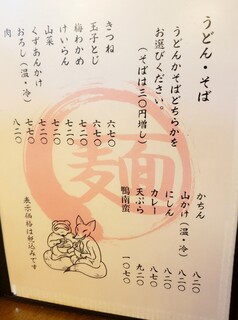 うどん・そば
うどんかそばどちらかを
お選びください。
（そばは三〇円増し）
きつね 六七〇
玉子とじ 六七〇
梅わかめ 七七〇
けいらん 七七〇
山菜 七七〇
くずあんかけ 七七〇
おろし（温・冷） 七七〇
肉 八二〇
かちん 八二〇
山かけ（温・冷） 八二〇
にしん 八七〇
カレー 八七〇
天ぷら 九二〇
鴨南蛮 一〇七〇
麺
表示価格は税込みです